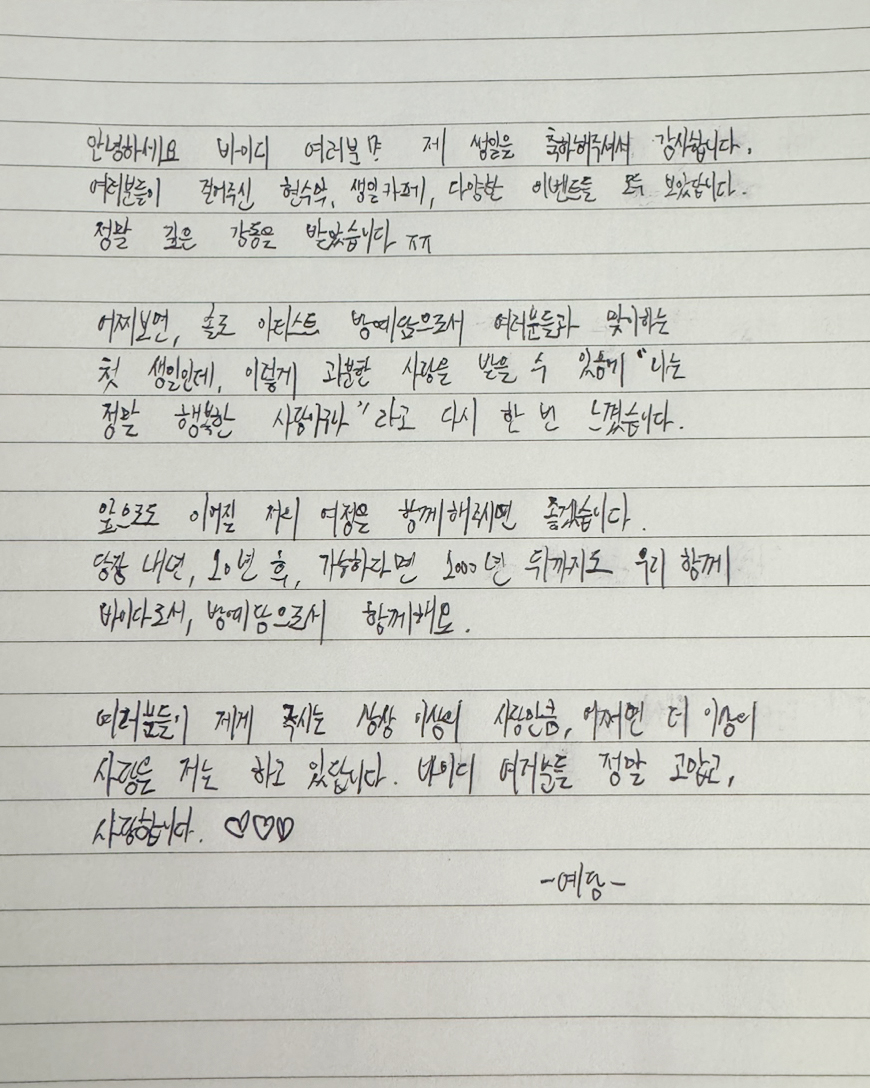 안녕하세요 바이디 여러분만 제 생일을 축하해주셔서 감사합니다.
여러분들이 걸어주신 현수막, 생일카페, 다양한 이벤트들 모두 보았답니다.
정말 깊은 감동을 받았습니다 ㅠㅠ
어찌보면, 솔로 아티스트 방예담으로서 여러분들과 맞이하는
첫 생일인데, 이렇게 과분한 사랑을 받을 수 있음에 "나는
정말 행복한 사람이구나" 라고 다시 한 번 느꼈습니다.
앞으로도 이어질 저의 여정을 함께해주시면 좋겠습니다.
당장 내년, 20년 후, 가능하다면 2000년 뒤까지도 우리 함께
바이디로서, 방예담으로서 함께해요.
여러분들이 제게 주시는 상상 이상의 사랑만큼, 어쩌면 더 이상의
사랑을 저는 하고 있답니다. 바이디 여러분들 정말 고맙고,
사랑합니다. ♡♡♡
-예담-